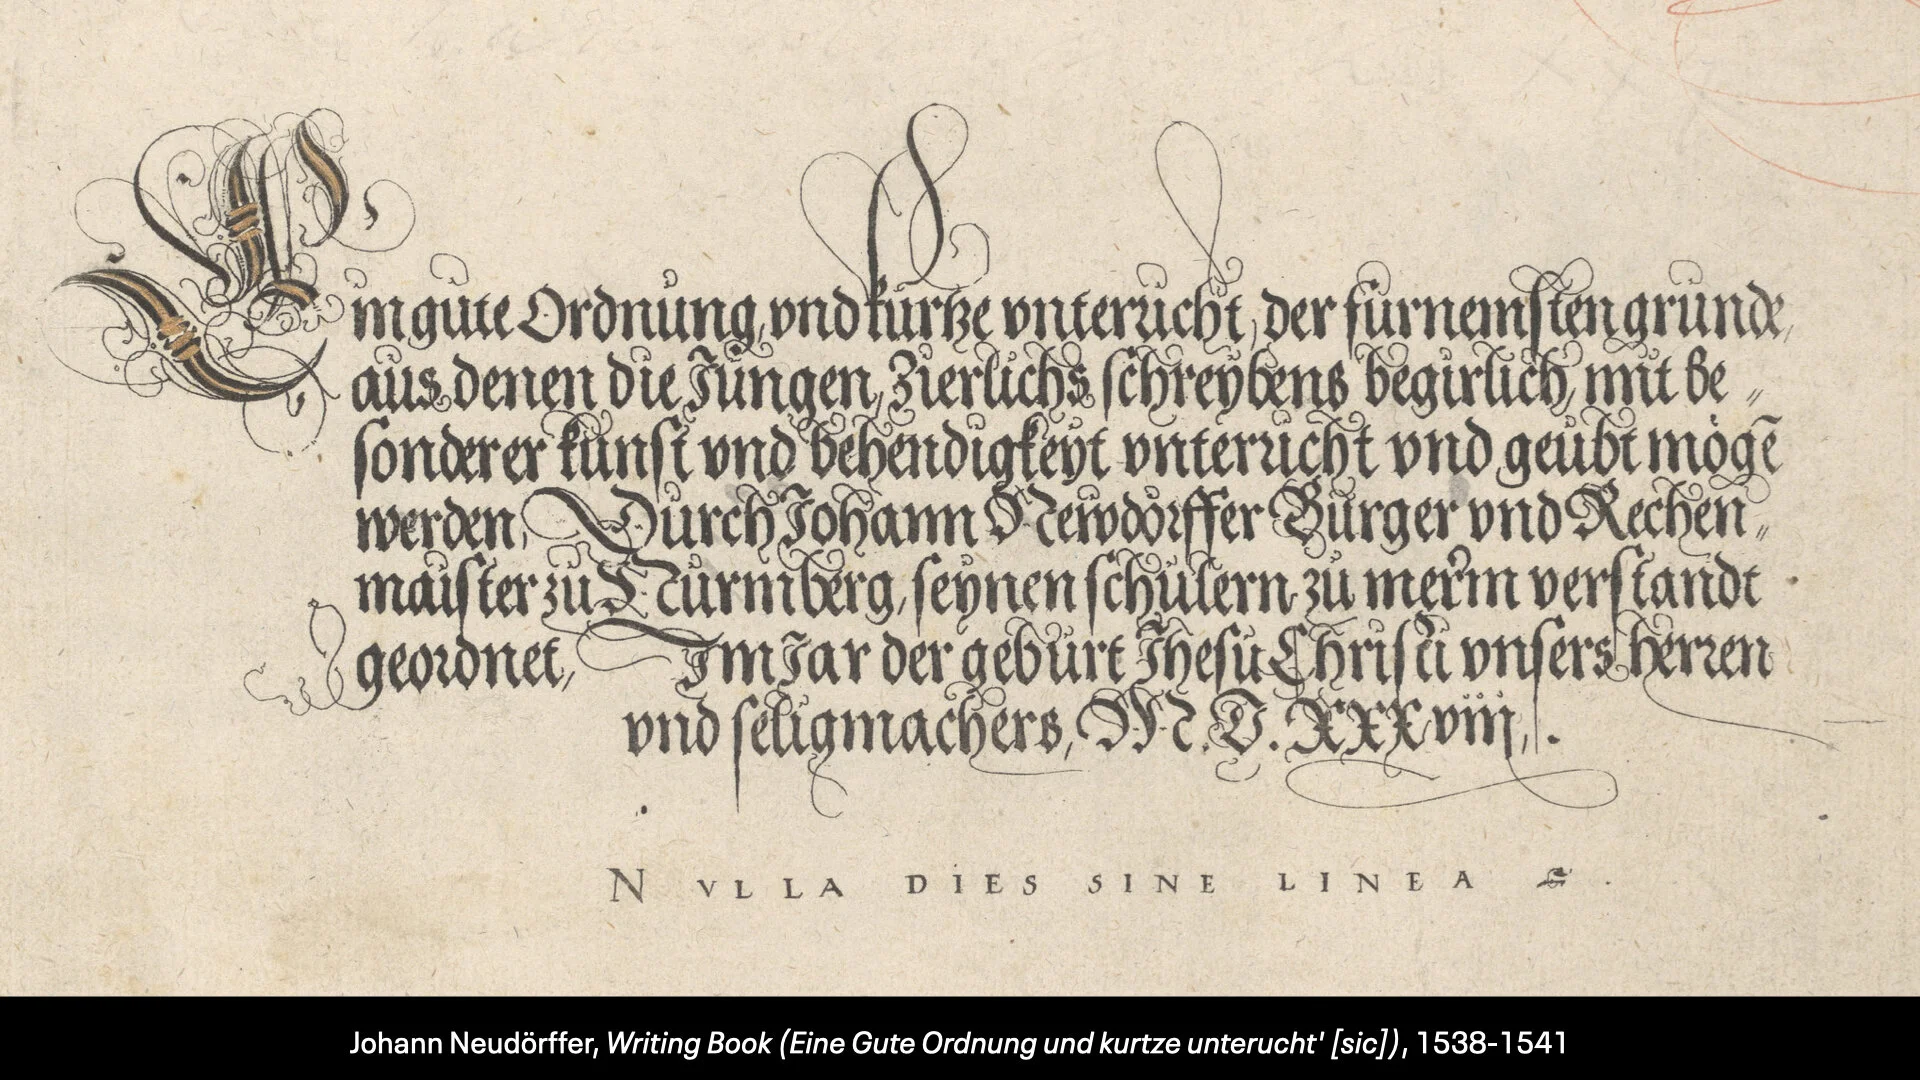 Ein gute Ordnung, vnd kurtze vnterricht, der furnemsten grunde,
aus denen die Jungen, Zierlichs schreybens begirlich, mit be〃
sonderer kunst vnd behendigkeyt vnterricht vnd geubt mögē
werden, Durch Johann Newdörffer Burger vnd Rechen〃
maister zu Nurmberg, seynen schulern zu merm verstandt
geordnet, Im Jar der geburt Jhesu Christi vnsers herren
vnd seligmachers, M.D.XXXviij.
NVLLA DIES SINE LINEA
Johann Neudörffer, Writing Book (Eine Gute Ordnung und kurtze unterucht' [sic]), 1538-1541